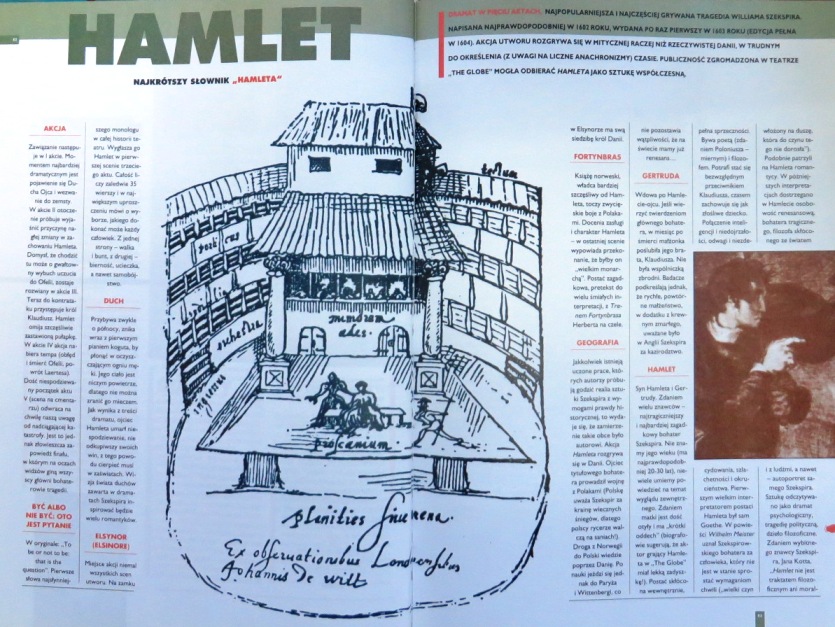 HAMLET
NAJKRÓTSZY SŁOWNIK „HAMLETA”
DRAMAT W PIĘCIU AKTACH. NAJPOPULARNIEJSZA I NAJCZĘŚCIEJ GRYWANA TRAGEDIA WILLIAMA SZEKSPIRA
NAPISANA NAJPRAWDOPODOBNIEJ W 1602 ROKU, WYDANA PO RAZ PIERWSZY W 1603 ROKU (EDYCJA PEŁNA
W 1604). AKCJA UTWORU ROZGRYWA SIĘ W MITYCZNEJ RACZEJ NIŻ RZECZYWISTEJ DANII, W TRUDNYM
DO OKREŚLENIA (Z UWAGI NA LICZNE ANACHRONIZMY) CZASIE. PUBLICZNOŚĆ ZGROMADZONA W TEATRZE
„THE GLOBE” MOGŁA ODBIERAĆ HAMLETA JAKO SZTUKĘ WSPÓŁCZESNĄ.
AKCJA
Zawiązanie następu-
je w I akcie. Mo-
mentem najbardziej
dramatycznym jest
pojawienie się Du-
cha Ojca i wezwa-
nie do zemsty.
W akcie II otocze-
nie próbuje wyja-
śnić przyczynę na-
głej zmiany w za-
chowaniu Hamleta.
Domysł, że chodzić
tu może o gwałtow-
ny wybuch uczucia
do Ofelii, zostaje
rozwiany w akcie III.
Teraz do kontrata-
ku przystępuje król
Klaudiusz. Hamlet
omija szczęśliwie
zastawioną pułapkę.
W akcie IV akcja na-
biera tempa (obłęd
i śmierć Ofelii, po-
wrót Laertesa).
Dość niespodziewa-
ny początek aktu
V (scena na cmenta-
rzu) odwraca na
chwilę naszą uwagę
od nadciągającej ka-
tastrofy. Jest to jed-
nak złowieszcza za-
powiedź finału,
w którym na oczach
widzów giną wszy-
scy główni bohate-
rowie tragedii.
BYĆ ALBO
NIE BYĆ; OTO
JEST PYTANIE
W oryginale: „To
be or not to be:
that is the
question”. Pierwsze
słowa najsłynniej-
szego monologu
w całej historii te-
atru. Wygłasza go
Hamlet w pierw-
szej scenie trzecie-
go aktu. Całość li-
czy zaledwie 35
wierszy i w naj-
większym uprosz-
czeniu mówi o wy-
borze, jakiego do-
konać może każdy
człowiek. Z jednej
strony – walka
i bunt, z drugiej –
bierność, ucieczka,
a nawet samobój-
stwo.
DUCH
Przybywa zwykle
o północy, znika
wraz z pierwszym
pianiem koguta, by
płonąć w oczysz-
czającym ogniu mę-
ki. Jego ciało jest
niczym powietrze,
dlatego nie można
zranić go mieczem.
Jak wynika z treści
dramatu, ojciec
Hamleta umarł nie-
spodziewanie, nie
odkupiwszy swoich
win, z tego powo-
du cierpieć musi
w zaświatach. Wi-
zja świata duchów
zawarta w drama-
tach Szekspira in-
spirować będzie
wielu romantyków.
ELSYNOR
(ELSINORE)
Miejsce akcji niemal
wszystkich scen
utworu. Na zamku
tectum
porticus
sedilia
orchestra
ingressus
mimorum
ædes.
proscænium.
planities siue arena.
Ex obseruationibus Londinensibus
Johannis De witt
w Elsynorze ma swą
siedzibę król Danii.
FORTYNBRAS
Książę norweski,
władca bardziej
szczęśliwy od Ham-
leta, toczy zwycię-
skie boje z Polaka-
mi. Docenia zasługi
i charakter Hamleta
– w ostatniej scenie
wypowiada przeko-
nanie, że byłby on
„wielkim monar-
chą”. Postać zagad-
kowa, pretekst do
wielu śmiałych in-
terpretacji, z Tre-
nem Fortynbrasa
Herberta na czele.
GEOGRAFIA
Jakkolwiek istnieją
uczone prace, któ-
rych autorzy próbu-
ją godzić realia sztu-
ki Szekspira z wy-
mogami prawdy hi-
storycznej, to wyda-
je się, że zamierze-
nie takie obce było
autorowi. Akcja
Hamleta rozgrywa
się w Danii. Ojciec
tytułowego bohate-
ra prowadził wojnę
z Polakami (Polskę
uważa Szekspir za
krainę wiecznych
śniegów, dlatego
polscy rycerze wal-
czą na saniach!).
Droga z Norwegii
do Polski wiedzie
poprzez Danię. Po
nauki jeździ się jed-
nak do Paryża
i Wittenbergi, co
nie pozostawia
wątpliwości, że na
świecie mamy już
renesans...
GERTRUDA
Wdowa po Hamle-
cie-ojcu. Jeśli wie-
rzyć twierdzeniom
głównego bohate-
ra, w miesiąc po
śmierci małżonka
poślubiła jego bra-
ta, Klaudiusza. Nie
była współniczką
zbrodni. Badacze
podkreślają jednak,
że rychłe, powtór-
ne małżeństwo,
w dodatku z krew-
nym zmarłego,
uważane było
w Anglii Szekspira
za kazirodztwo.
HAMLET
Syn Hamleta i Ger-
trudy. Zdaniem
wielu znawców –
najtragiczniejszy
i najbardziej zagad-
kowy bohater
Szekspira. Nie zna-
my jego wieku (ma
najprawdopodob-
niej 20-30 lat), nie-
wiele umiemy po-
wiedzieć na temat
wyglądu zewnętrz-
nego. Zdaniem
matki jest dość
otyły i ma „krótki
oddech” (biografo-
wie sugerują, że ak-
tor grający Hamle-
ta w „The Globe”
miał lekką zadysz-
kę!). Postać skłóco-
na wewnętrznie,
pełna sprzeczności.
Bywa poetą (zda-
niem Poloniusza –
miernym) i filozo-
fem. Potrafi stać się
bezwzględnym
przeciwnikiem
Klaudiusza, czasem
zachowuje się jak
złośliwe dziecko.
Połączenie inteli-
gencji i niedojrzało-
ści, odwagi i niezde-
cydowania, szla-
chetności i okru-
cieństwa. Pierw-
szym wielkim inter-
pretatorem postaci
Hamleta był sam
Goethe. W powie-
ści Wilhelm Meister
uznał Szekspirow-
skiego bohatera za
człowieka, który nie
jest w stanie spro-
stać wymaganiom
chwili („wielki czyn
włożony na duszę,
która do czynu te-
go nie dorosła”).
Podobnie patrzyli
na Hamleta roman-
tycy. W później-
szych interpreta-
cjach dostrzegano
w Hamlecie osobo-
wość renesansową,
bohatera tragiczne-
go, filozofa skłóco-
nego ze światem
i z ludźmi, a nawet
– autoportret sa-
mego Szekspira.
Sztukę odczytywa-
no jako dramat
psychologiczny,
tragedię polityczną,
dzieło filozoficzne.
Zdaniem wybitne-
go znawcy Szekspi-
ra, Jana Kotta,
„Hamlet nie jest
traktatem filozo-
ficznym ani moral-